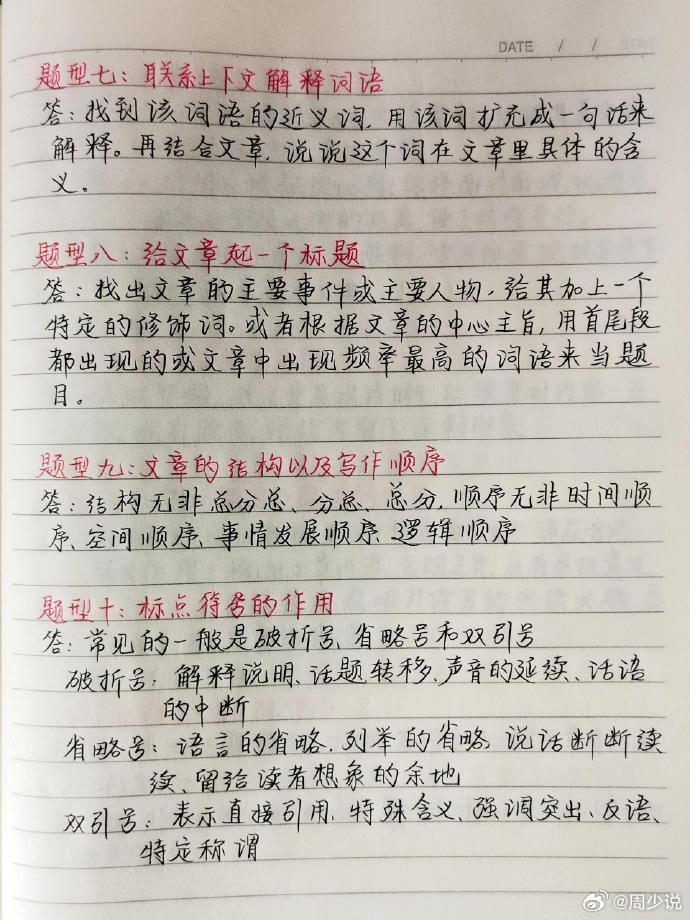 DATE / /
题型七：联系上下文解释词语
答：找到该词语的近义词，用该词扩充成一句话来
解释。再结合文章，说说这个词在文章里具体的含
义。
题型八：给文章起一个标题
答：找出文章的主要事件或主要人物，给其加上一个
特定的修饰词。或者根据文章的中心主旨，用首尾段
都出现的或文章中出现频率最高的词语来当题
目。
题型九：文章的结构以及写作顺序
答：结构无非总分总、分总、总分，顺序无非时间顺
序、空间顺序、事情发展顺序、逻辑顺序
题型十：标点符号的作用
答：常见的一般是破折号、省略号和双引号
破折号：解释说明、话题转移、声音的延续、话语
的中断
省略号：语言的省略，列举的省略，说话断断续
续、留给读者想象的余地
双引号：表示直接引用，特殊含义、强调突出、反语、
特定称谓
@周少说